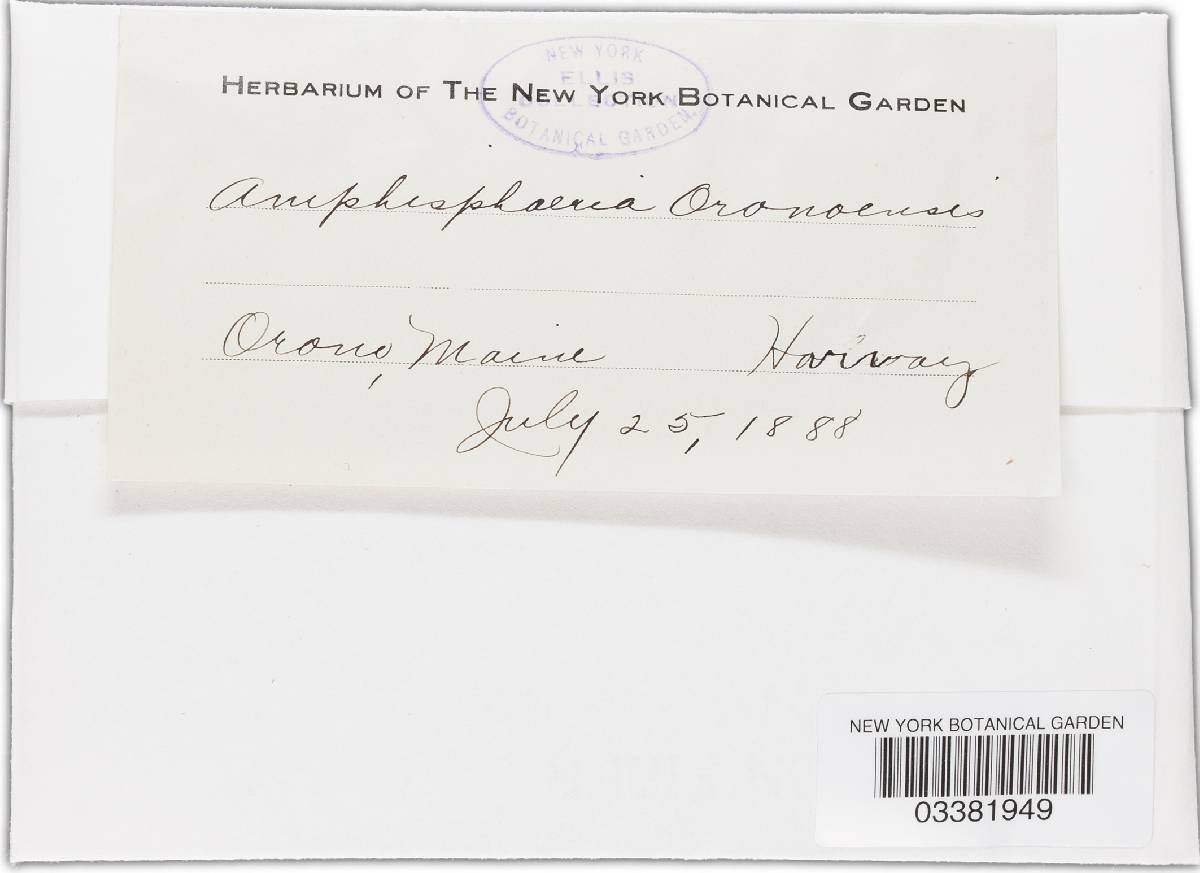 NEW YORK
ELLIS
COLLECTION
BOTANICAL GARDEN.
HERBARIUM OF THE NEW YORK BOTANICAL GARDEN
Amphisphaeria Oronoensis
Orono, Maine Harvey
July 25, 1888
NEW YORK BOTANICAL GARDEN
03381949